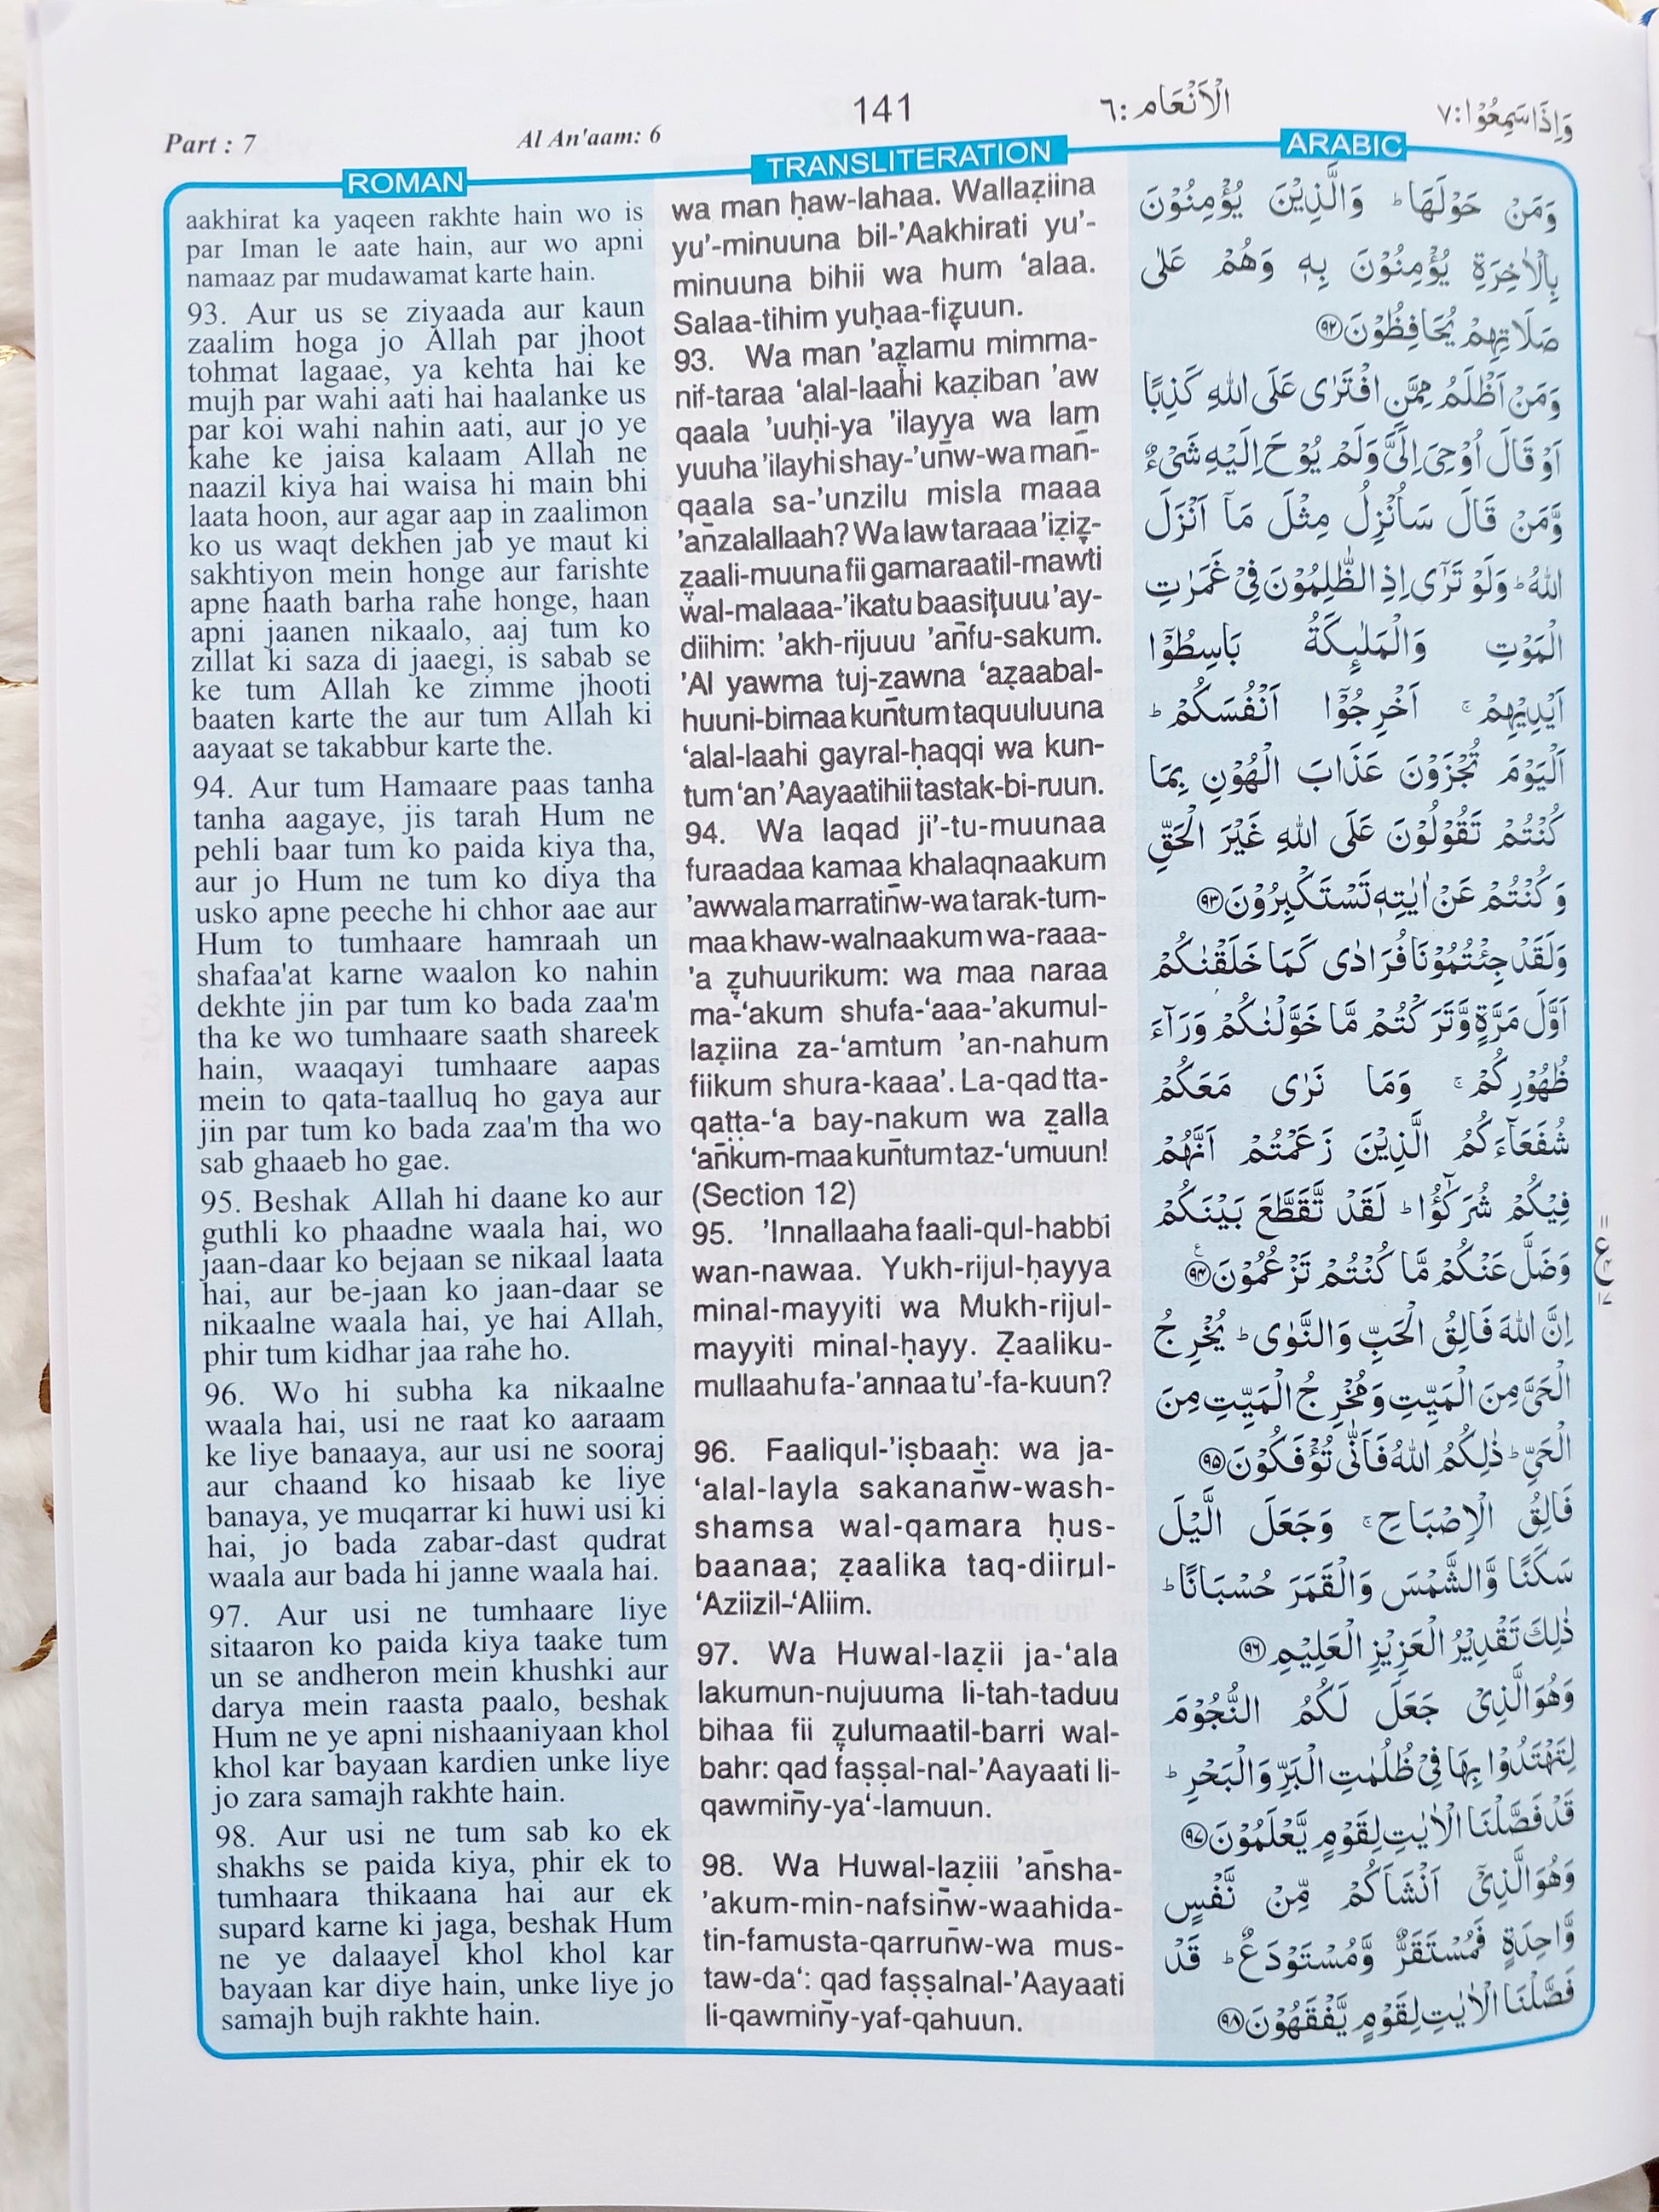 Part : 7
Al An'aam: 6
141
الۡاَنۡعَام :٦
وَاِذَاسَمِعُوۡا:٧
ROMAN
aakhirat ka yaqeen rakhte hain wo is
par Iman le aate hain, aur wo apni
namaaz par mudawamat karte hain.
93. Aur us se ziyaada aur kaun
zaalim hoga jo Allah par jhoot
tohmat lagaae, ya kehta hai ke
mujh par wahi aati hai haalanke us
par koi wahi nahin aati, aur jo ye
kahe ke jaisa kalaam Allah ne
naazil kiya hai waisa hi main bhi
laata hoon, aur agar aap in zaalimon
ko us waqt dekhen jab ye maut ki
sakhtiyon mein honge aur farishte
apne haath barha rahe honge, haan
apni jaanen nikaalo, aaj tum ko
zillat ki saza di jaaegi, is sabab se
ke tum Allah ke zimme jhooti
baaten karte the aur tum Allah ki
aayaat se takabbur karte the.
94. Aur tum Hamaare paas tanha
tanha aagaye, jis tarah Hum ne
pehli baar tum ko paida kiya tha,
aur jo Hum ne tum ko diya tha
usko apne peeche hi chhor aae aur
Hum to tumhaare hamraah un
shafaa'at karne waalon ko nahin
dekhte jin par tum ko bada zaa'm
tha ke wo tumhaare saath shareek
hain, waaqayi tumhaare aapas
mein to qata-taalluq ho gaya aur
jin par tum ko bada zaa'm tha wo
sab ghaaeb ho gae.
95. Beshak Allah hi daane ko aur
guthli ko phaadne waala hai, wo
jaan-daar ko bejaan se nikaal laata
hai, aur be-jaan ko jaan-daar se
nikaalne waala hai, ye hai Allah,
phir tum kidhar jaa rahe ho.
96. Wo hi subha ka nikaalne
waala hai, usi ne raat ko aaraam
ke liye banaaya, aur usi ne sooraj
aur chaand ko hisaab ke liye
banaya, ye muqarrar ki huwi usi ki
hai, jo bada zabar-dast qudrat
waala aur bada hi janne waala hai.
97. Aur usi ne tumhaare liye
sitaaron ko paida kiya taake tum
un se andheron mein khushki aur
darya mein raasta paalo, beshak
Hum ne ye apni nishaaniyaan khol
khol kar bayaan kardien unke liye
jo zara samajh rakhte hain.
98. Aur usi ne tum sab ko ek
shakhs se paida kiya, phir ek to
tumhaara thikaana hai aur ek
supard karne ki jaga, beshak Hum
ne ye dalaayel khol khol kar
bayaan kar diye hain, unke liye jo
samajh bujh rakhte hain.
TRANSLITERATION
wa man ḥaw-lahaa. Wallaẓiina
yu’-minuuna bil-’Aakhirati yu’-
minuuna bihii wa hum ‘alaa.
Salaa-tihim yuḥaa-fiẓuun.
93. Wa man ’aẓlamu mimma-
nif-taraa ‘alal-laahi kaẓiban ’aw
qaala ’uuḥi-ya ’ilayya wa lam
yuuha ’ilayhi shay-’un̄w-wa man̄-
qaala sa-’unzilu misla maaa
’an̄zalallaah? Wa law taraaa ’iẓiẓ-
ẓaali-muuna fii gamaraatil-mawti
wal-malaaa-’ikatu baasiṭuuu ’ay-
diihim: ’akh-rijuuu ’an̄fu-sakum.
’Al yawma tuj-zawna ‘aẓaabal-
huuni-bimaa kun̄tum taquuluuna
‘alal-laahi gayral-ḥaqqi wa kun-
tum ‘an ’Aayaatihii tastak-bi-ruun.
94. Wa laqad ji’-tu-muunaa
furaadaa kamaa khalaqnaakum
’awwala marratin̄w-wa tarak-tum-
maa khaw-walnaakum wa-raaa-
’a ẓuhuurikum: wa maa naraa
ma-‘akum shufa-‘aaa-’akumul-
laẓiina za-‘amtum ’an-nahum
fiikum shura-kaaa’. La-qad tta-
qaṭṭa-‘a bay-nakum wa ẓalla
‘an̄kum-maa kun̄tum taz-‘umuun!
(Section 12)
95. ’Innallaaha faali-qul-habbi
wan-nawaa. Yukh-rijul-ḥayya
minal-mayyiti wa Mukh-rijul-
mayyiti minal-ḥayy. Ẓaaliku-
mullaahu fa-’annaa tu’-fa-kuun?
96. Faaliqul-’iṣbaaḥ: wa ja-
‘alal-layla sakanan̄w-wash-
shamsa wal-qamara ḥus-
baanaa; ẓaalika taq-diirul-
‘Aziizil-‘Aliim.
97. Wa Huwal-laẓii ja-‘ala
lakumun-nujuuma li-tah-taduu
bihaa fii ẓulumaatil-barri wal-
bahr: qad faṣṣal-nal-’Aayaati li-
qawmin̄y-ya‘-lamuun.
98. Wa Huwal-laẓiii ’an̄sha-
’akum-min-nafsin̄w-waahida-
tin-famusta-qarrun̄w-wa mus-
taw-da‘: qad faṣṣalnal-’Aayaati
li-qawmin̄y-yaf-qahuun.
ARABIC
وَمَنۡ حَوۡلَهَا ؕ وَالَّذِيۡنَ يُؤۡمِنُوۡنَ
بِالۡاٰخِرَةِ يُؤۡمِنُوۡنَ بِهٖ وَهُمۡ عَلٰى
صَلَاتِهِمۡ يُحَافِظُوۡنَ ﴿۹۲﴾
وَمَنۡ اَظۡلَمُ مِمَّنِ افۡتَرٰى عَلَى اللّٰهِ كَذِبًا
اَوۡ قَالَ اُوۡحِىَ اِلَىَّ وَلَمۡ يُوۡحَ اِلَيۡهِ شَىۡءٌ
وَّمَنۡ قَالَ سَاُنۡزِلُ مِثۡلَ مَاۤ اَنۡزَلَ
اللّٰهُ ؕ وَلَوۡ تَرٰٓى اِذِ الظّٰلِمُوۡنَ فِىۡ غَمَرٰتِ
الۡمَوۡتِ وَالۡمَلٰٓٮِٕكَةُ بَاسِطُوۡۤا
اَيۡدِيۡهِمۡ ۚ اَخۡرِجُوۡۤا اَنۡفُسَكُمۡ ؕ
اَلۡيَوۡمَ تُجۡزَوۡنَ عَذَابَ الۡهُوۡنِ بِمَا
كُنۡتُمۡ تَقُوۡلُوۡنَ عَلَى اللّٰهِ غَيۡرَ الۡحَقِّ
وَكُنۡتُمۡ عَنۡ اٰيٰتِهٖ تَسۡتَكۡبِرُوۡنَ ﴿۹۳﴾
وَلَقَدۡ جِئۡتُمُوۡنَا فُرَادٰى كَمَا خَلَقۡنٰكُمۡ
اَوَّلَ مَرَّةٍ وَّتَرَكۡتُمۡ مَّا خَوَّلۡنٰكُمۡ وَرَآءَ
ظُهُوۡرِكُمۡ ۚ وَمَا نَرٰى مَعَكُمۡ
شُفَعَآءَكُمُ الَّذِيۡنَ زَعَمۡتُمۡ اَنَّهُمۡ
فِيۡكُمۡ شُرَكٰٓؤُا ؕ لَقَدۡ تَّقَطَّعَ بَيۡنَكُمۡ
وَضَلَّ عَنۡكُمۡ مَّا كُنۡتُمۡ تَزۡعُمُوۡنَ ﴿۹۴﴾
اِنَّ اللّٰهَ فَالِقُ الۡحَبِّ وَالنَّوٰى ؕ يُخۡرِجُ
الۡحَىَّ مِنَ الۡمَيِّتِ وَمُخۡرِجُ الۡمَيِّتِ مِنَ
الۡحَىِّ ؕ ذٰلِكُمُ اللّٰهُ فَاَنّٰى تُؤۡفَكُوۡنَ ﴿۹۵﴾
فَالِقُ الۡاِصۡبَاحِ ۚ وَجَعَلَ الَّيۡلَ
سَكَنًا وَّالشَّمۡسَ وَالۡقَمَرَ حُسۡبَانًا ؕ
ذٰلِكَ تَقۡدِيۡرُ الۡعَزِيۡزِ الۡعَلِيۡمِ ﴿۹۶﴾
وَهُوَ الَّذِىۡ جَعَلَ لَكُمُ النُّجُوۡمَ
لِتَهۡتَدُوۡا بِهَا فِىۡ ظُلُمٰتِ الۡبَرِّ وَالۡبَحۡرِ ؕ
قَدۡ فَصَّلۡنَا الۡاٰيٰتِ لِقَوۡمٍ يَّعۡلَمُوۡنَ ﴿۹۷﴾
وَهُوَ الَّذِىۡۤ اَنۡشَاَكُمۡ مِّنۡ نَّفۡسٍ
وَّاحِدَةٍ فَمُسۡتَقَرٌّ وَّمُسۡتَوۡدَعٌ ؕ قَدۡ
فَصَّلۡنَا الۡاٰيٰتِ لِقَوۡمٍ يَّفۡقَهُوۡنَ ﴿۹۸﴾